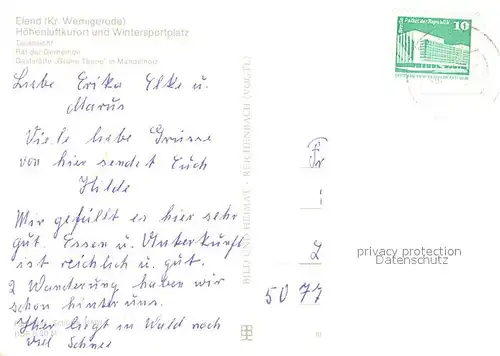 Elend (Kr. Wernigerode)
Höhenluftkurort und Wintersportplatz
Teilansicht
Rat der Gemeinde
Gaststätte "Grüne Tanne" in Mandelholz
Liebe Erika Elke u.
Marus
Viele liebe Grüsse
von hier sendet Euch
Hilde
Mir gefüllt es hier sehr
gut. Essen u. Unterkunft
ist reichlich u. gut.
2 Wanderung haben wir
schon hinter uns.
Hier liegt in Wald noch
viel Schnee
BILD UND HEIMAT · REICHENBACH (VOGTL)
Palast der Republik
10
DDR
Fr
L
5077
privacy protection
Datenschutz